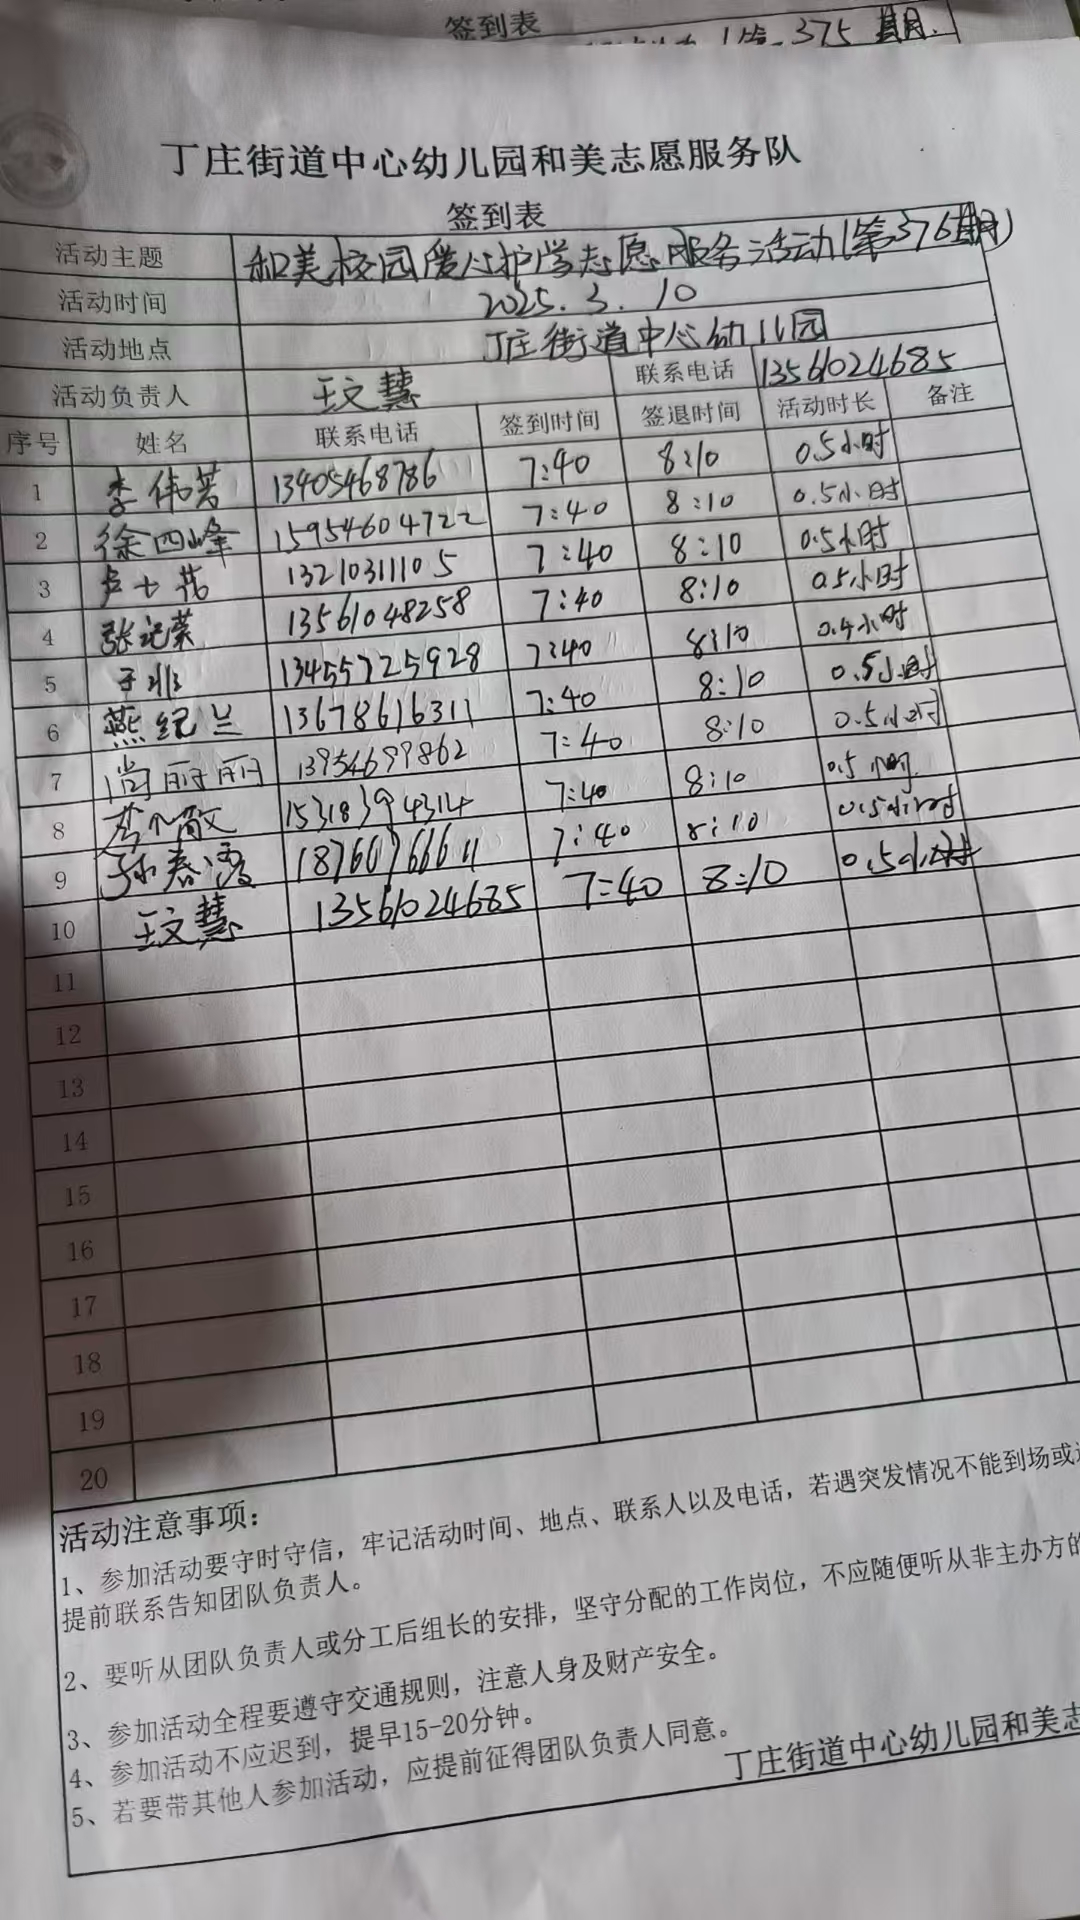 签到表
375 期.
丁庄街道中心幼儿园和美志愿服务队
签到表
活动主题 和美校园爱心护学志愿服务活动(第376期)
活动时间 2025.3.10
活动地点 丁庄街道中心幼儿园
活动负责人 王文慧 联系电话 13561024685
序号 姓名 联系电话 签到时间 签退时间 活动时长 备注
1 李伟芳 13405468786 7:40 8:10 0.5小时
2 徐四峰 15954604722 7:40 8:10 0.5小时
3 13210311105 7:40 8:10 0.5小时
4 张纪荣 13561048258 7:40 8:10 0.5小时
5 于非 13455725928 7:40 8:10 0.4小时
6 燕纪兰 13678616311 7:40 8:10 0.5小时
7 尚丽丽 13954699862 7:40 8:10 0.5小时
8 15318394314 7:40 8:10 0.5小时
9 孙春霞 18760766611 7:40 8:10 0.5小时
10 王文慧 13561024685 7:40 8:10 0.5小时
11
12
13
14
15
16
17
18
19
20
活动注意事项：
1、参加活动要守时守信，牢记活动时间、地点、联系人以及电话，若遇突发情况不能到场或
提前联系告知团队负责人。
2、要听从团队负责人或分工后组长的安排，坚守分配的工作岗位，不应随便听从非主办方的
3、参加活动全程要遵守交通规则，注意人身及财产安全。
4、参加活动不应迟到，提早15-20分钟。
5、若要带其他人参加活动，应提前征得团队负责人同意。
丁庄街道中心幼儿园和美志